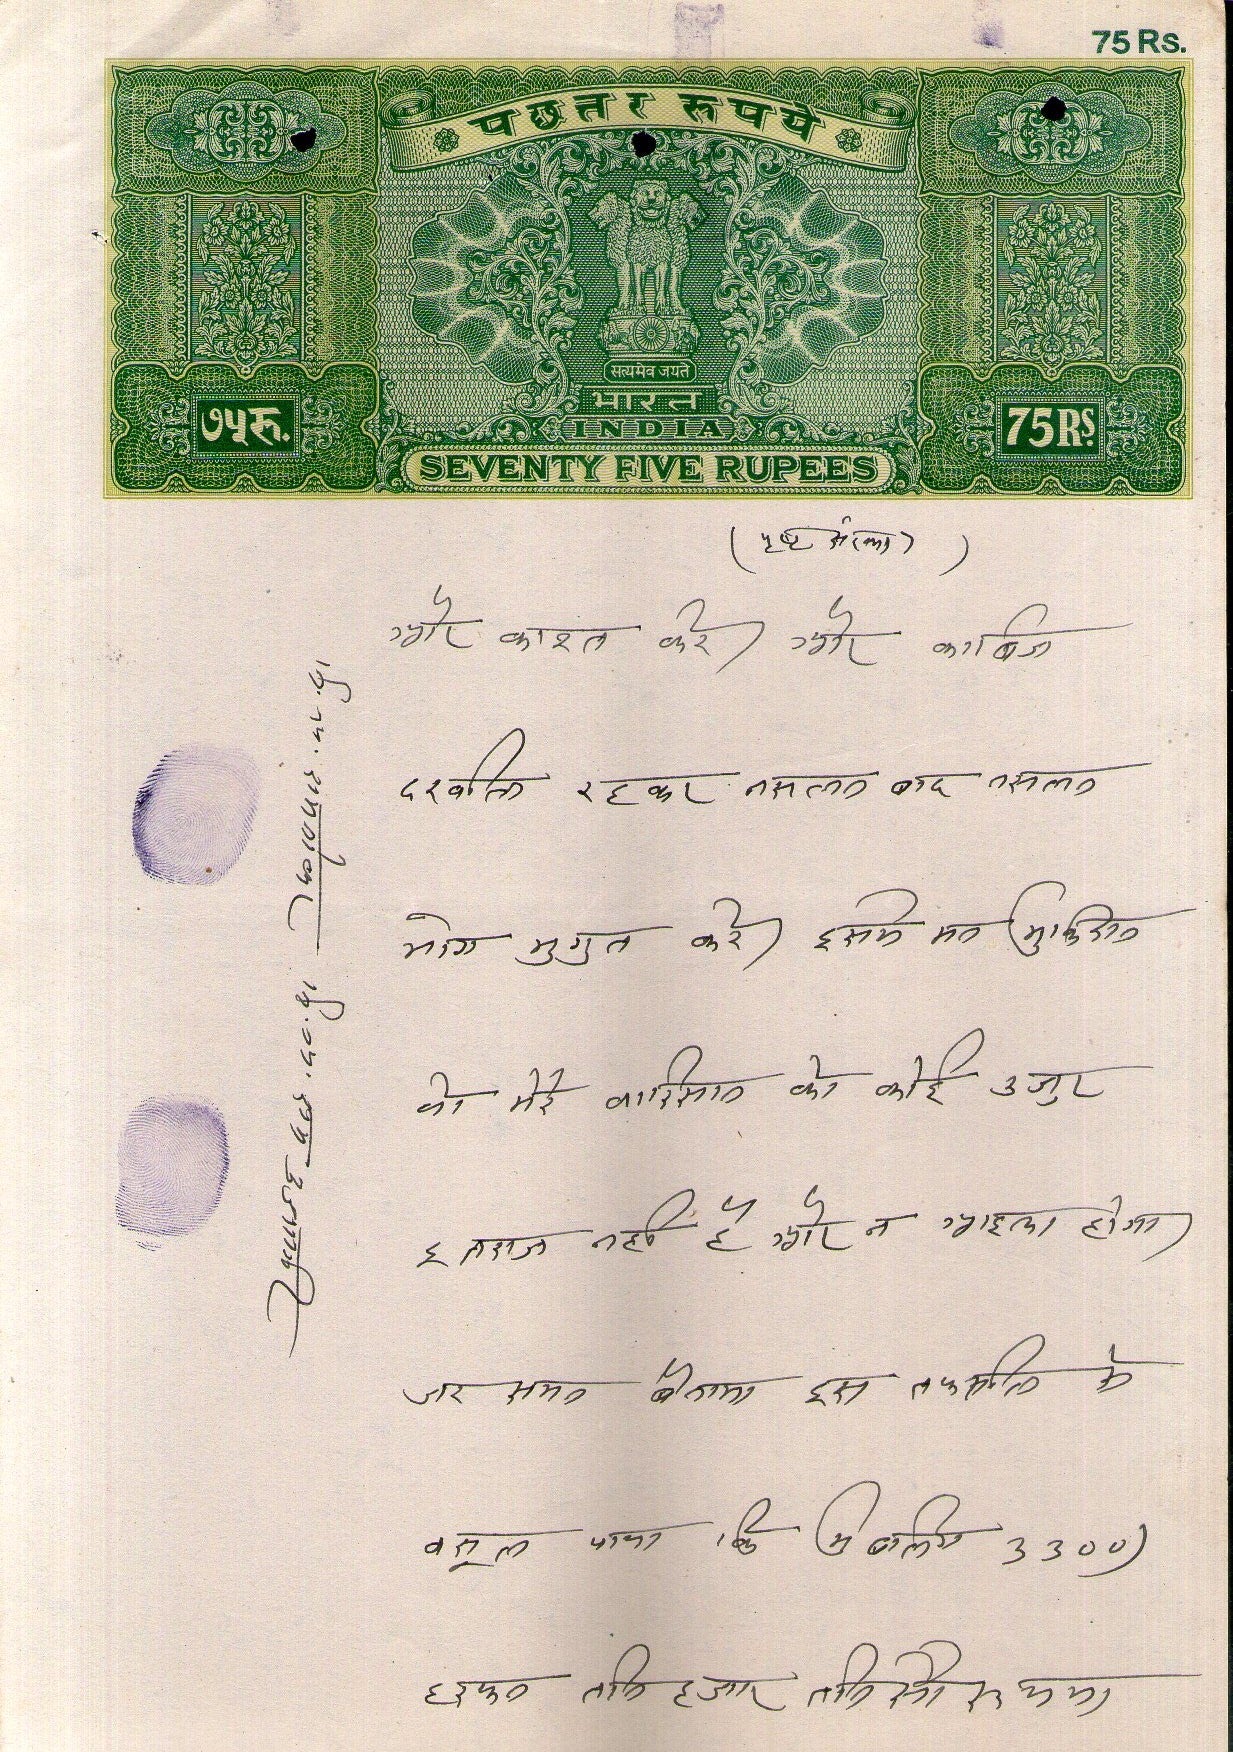 75 Rs.
पछत्तर रुपये
सत्यमेव जयते
भारत
INDIA
७५रू.
75 Rs.
SEVENTY FIVE RUPEES
(पृष्ठ संख्या ३)
और काश्त करे। और काबिज
दखील रहकर नसलन बाद नसलन
भोग भुगुत करे। इसमे मन मुकिरान
वो मेरे वारिसान को कोई उजुर
इतराज नहीं है और न आइन्दा होगा।
जर समन बैनामा इस तफसील से
वसूल पाया कि मुबलिग ३३००)
तीन हजार तीन सौ रूपया